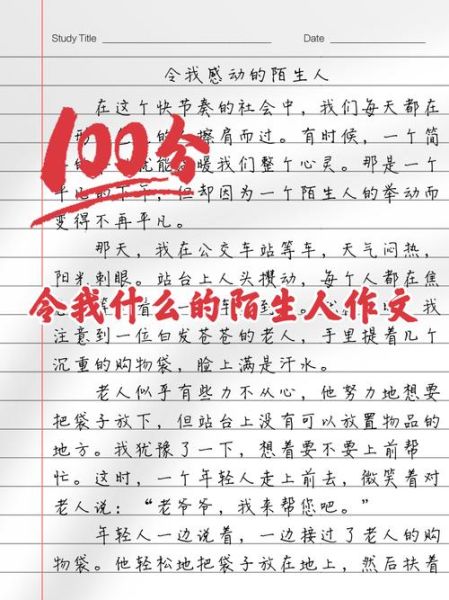 Study Title
Date
令我感动的陌生人
在这个快节奏的社会中，我们每天都在
擦肩而过。有时候，一个简
暖我们整个心灵。那是一个
但却因为一个陌生人的举动而
变得不再平凡。
100分
那天，我在公交车站等车，天气闷热，
阳光刺眼。站台上人头攒动，每个人都在焦
令我什么的陌生人作文
注意到一位白发苍苍的老人，手里提着几个
沉重的购物袋，脸上满是汗水。
老人似乎有些力不从心，他努力地想要
把袋子放下，但站台上没有可以放置物品的
地方。我犹豫了一下，想着要不要上前帮
忙。这时，一个年轻人走上前去，微笑着对
老人说：“老爷爷，我来帮您吧。”
年轻人一边说着，一边接过了老人的购
物袋。他轻松地把袋子放在地上，然后扶着